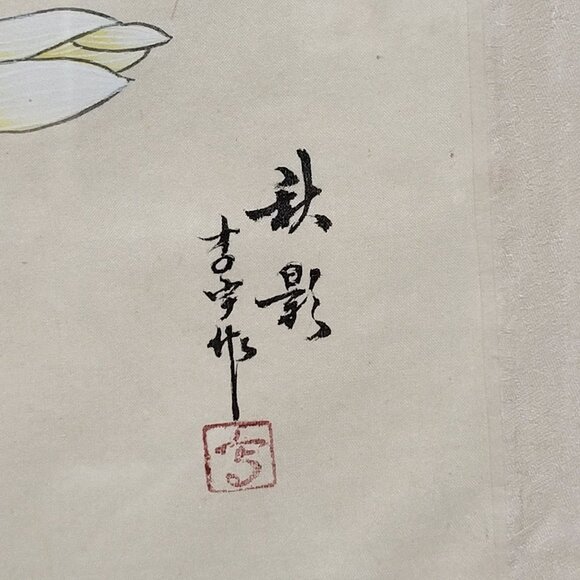 秋影
李宇作